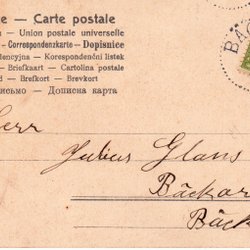 e — Carte postale
n — Union postale universelle
— Correspondenzkarte — Dopisnice
dencyjna — Korespondenční listek
— Briefkaart — Cartolina postale
d — Brefkort — Brevkort
письмо — Дописна карта
BÄC
Herr
Julius Glans
Bäckar
Bäck